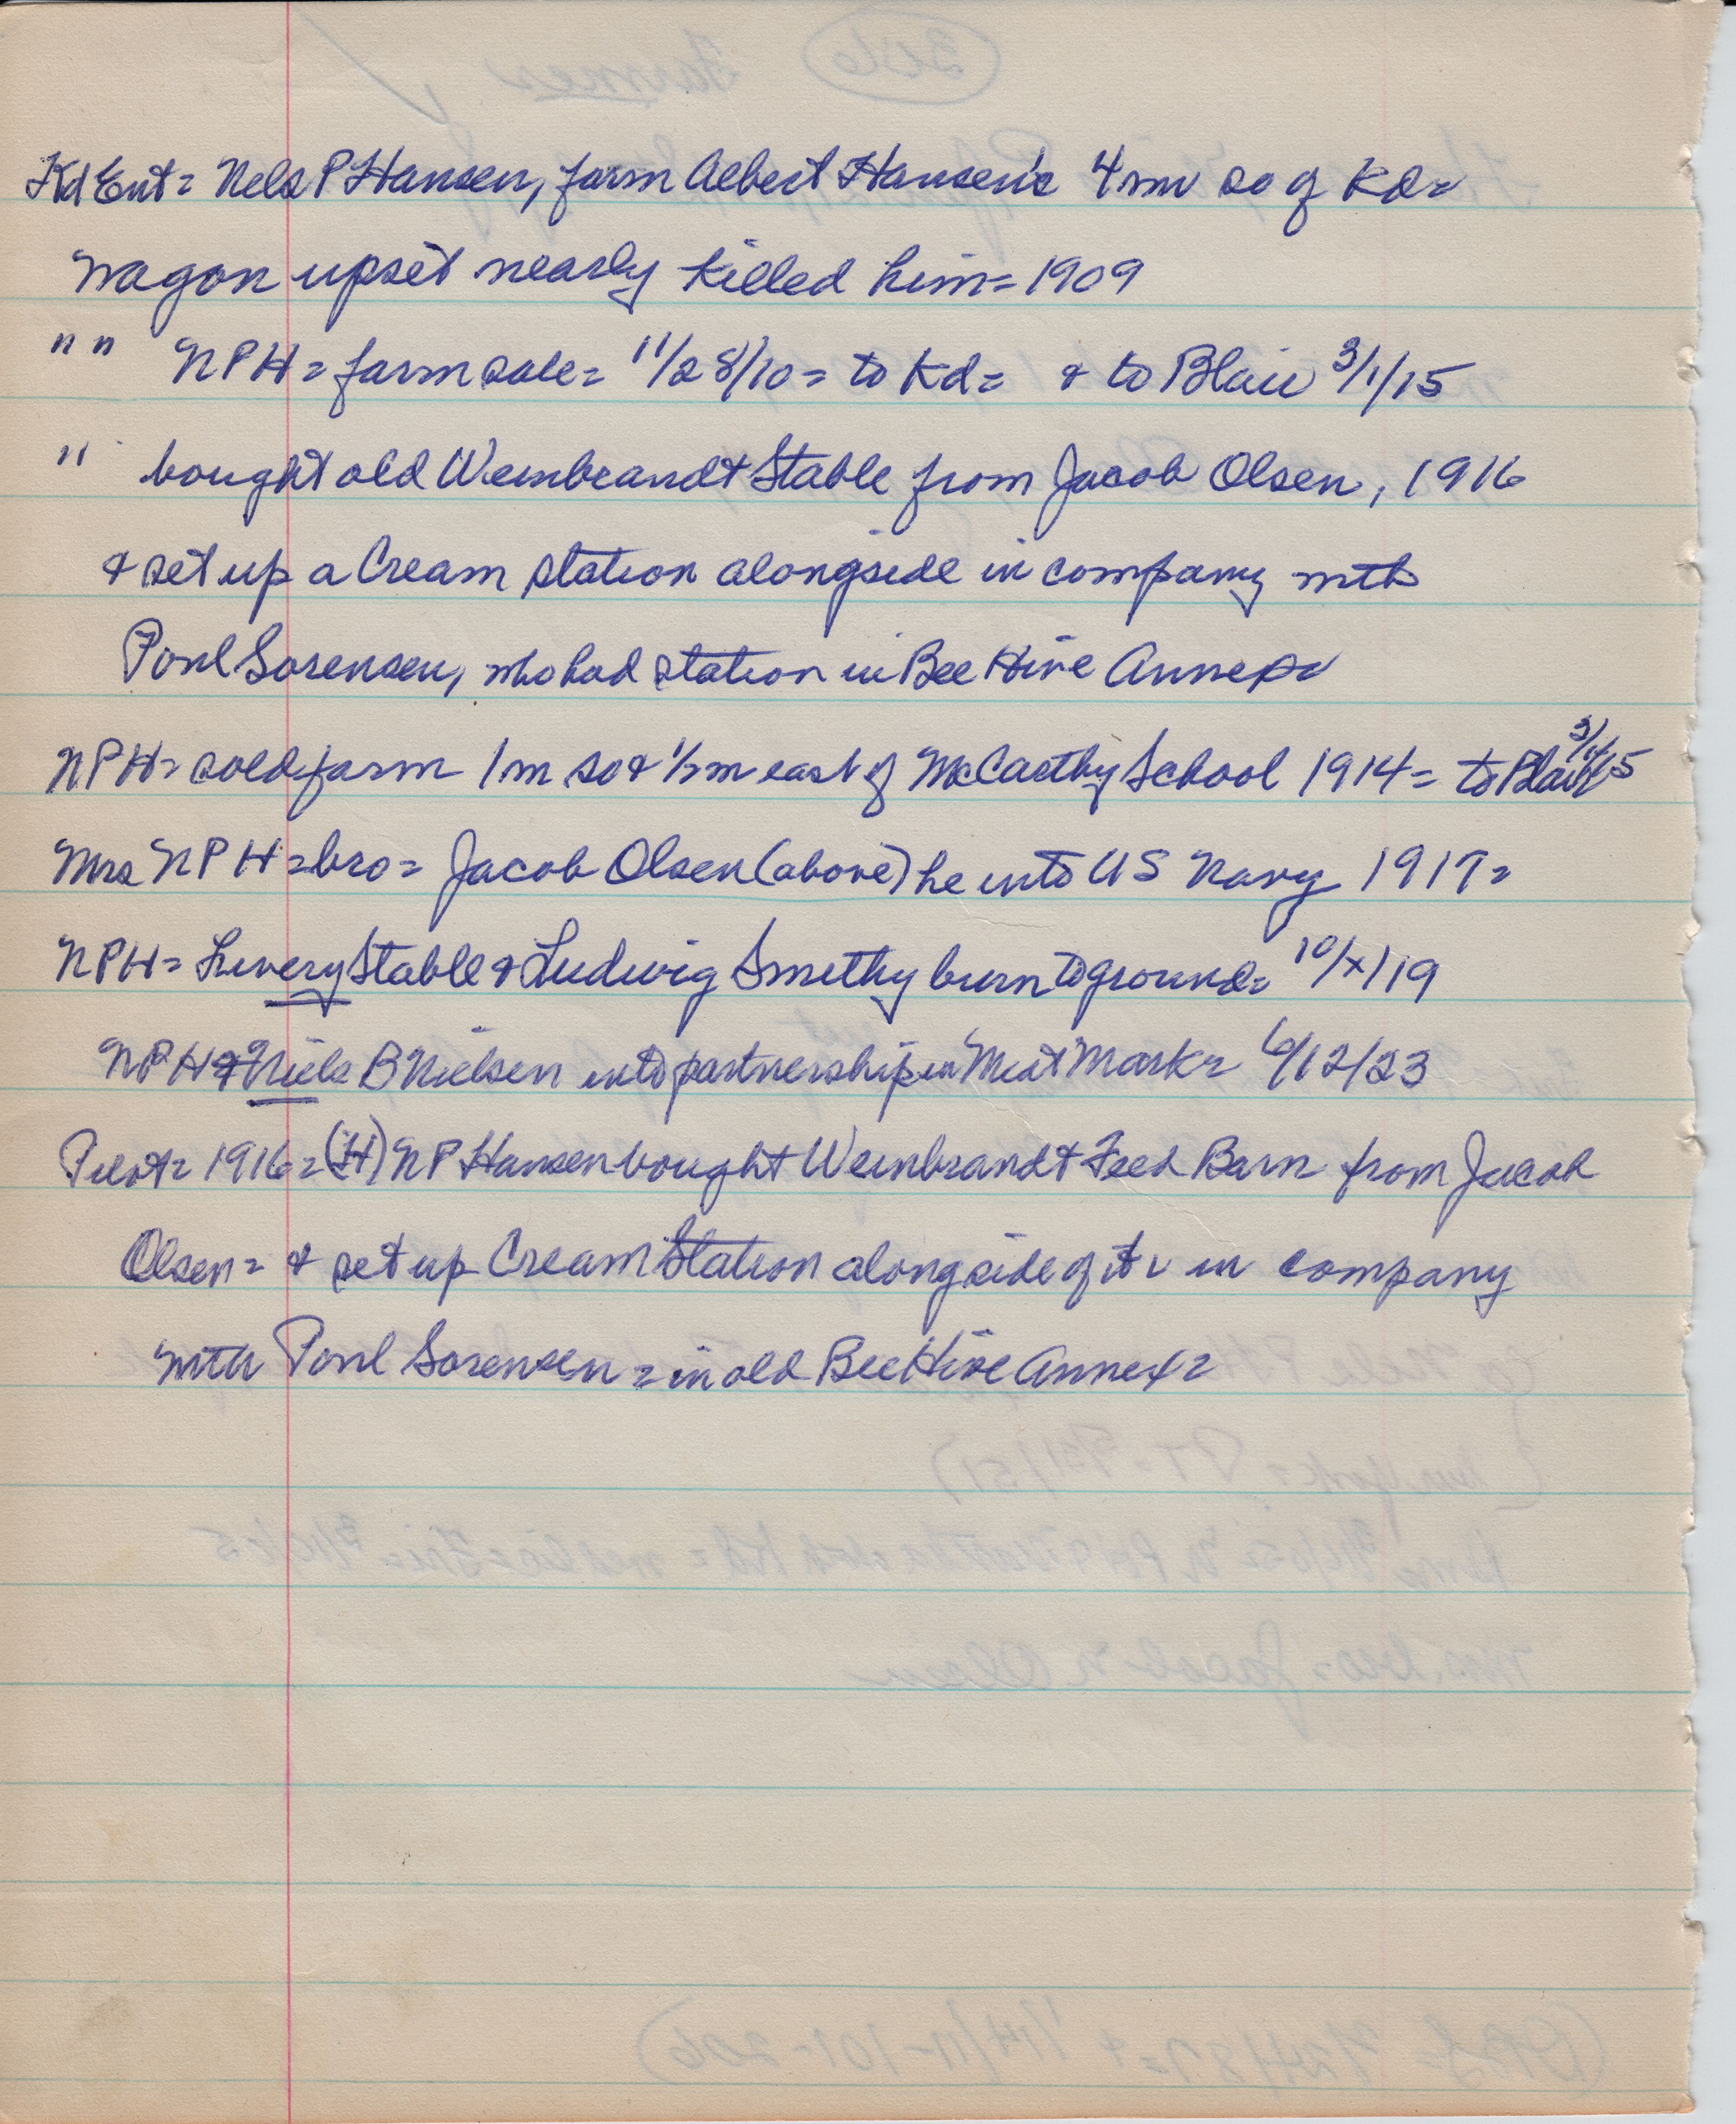 Kd Ent = Nels P Hansen, farm Albert Hansen's 4 mi so of Kd =
Wagon upset nearly killed him = 1909
" " NPH = farm sale = 11/28/10 = to Kd = & to Blair 3/1/15
" bought old Weinbrandt Stable from Jacob Olsen, 1916
& set up a Cream station alongside in company with
Poul Sorensen, who had station in Bee Hive Annex
NPH = sold farm 1 m so & 1/2 m east of McCarthy School 1914 = to Blair
Mrs NPH = bro = Jacob Olsen (above) he into US Navy 1917 =
NPH = Livery Stable & Ludwig Smithy burn to ground = 10/x/19
NPH & Niels B Nielsen into partnership in Meat Mark = 6/12/23
Pilot = 1916 = (H) NP Hansen bought Weinbrandt Feed Barn from Jacob
Olsen = & set up Cream Station alongside of it in company
with Poul Sorensen = in old Bee Hive Annex =